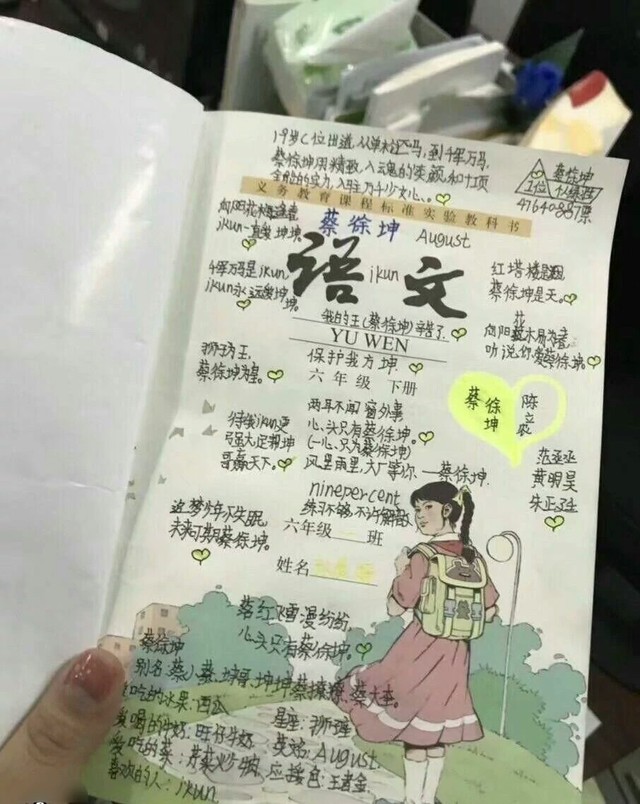 19岁C位出道,从单枪匹马,到千军万马,
蔡徐坤用精致,入魂的笑颜,和十项
全能的实力,入驻万千少女心、。
蔡徐坤
1位 个人练习
47640887票
义务教育课程标准实验教科书
向阳花木
ikun一直爱 坤坤。
蔡徐坤 August
语文
ikun
千军万马是ikun
ikun永远爱坤坤。
红塔
蔡徐坤是天。
我的王(蔡徐坤)辛苦了.
YU WEN
花
向阳蔡木易为春,
听说,你爱蔡徐坤。
狮子为王,
蔡徐坤为皇。
保护我方坤
六年级 下册
蔡徐坤
陈立农
待我ikun更
弓强大,定帮坤
哥赢天下。
两耳不闻 窗外事
心、头只有蔡徐坤。
(一心、只为蔡徐坤)
风里雨里,大厂等你—蔡徐坤.
范丞丞
黄明昊
朱正廷
ninepercent
练习不够,不许解散
追梦少年不失眠,
未来可期蔡徐坤。
六年级 班
姓名
落红飞雪漫纷纷,
心头只有蔡徐坤。
蔡徐坤
别名:蔡小葵,坤哥,坤坤
吃的水果:西瓜
爱喝的牛奶:旺仔牛奶
星座:狮子座
爱吃的菜:芹菜炒牛肉,
英名:August
应援色:
喜欢的人:ikun